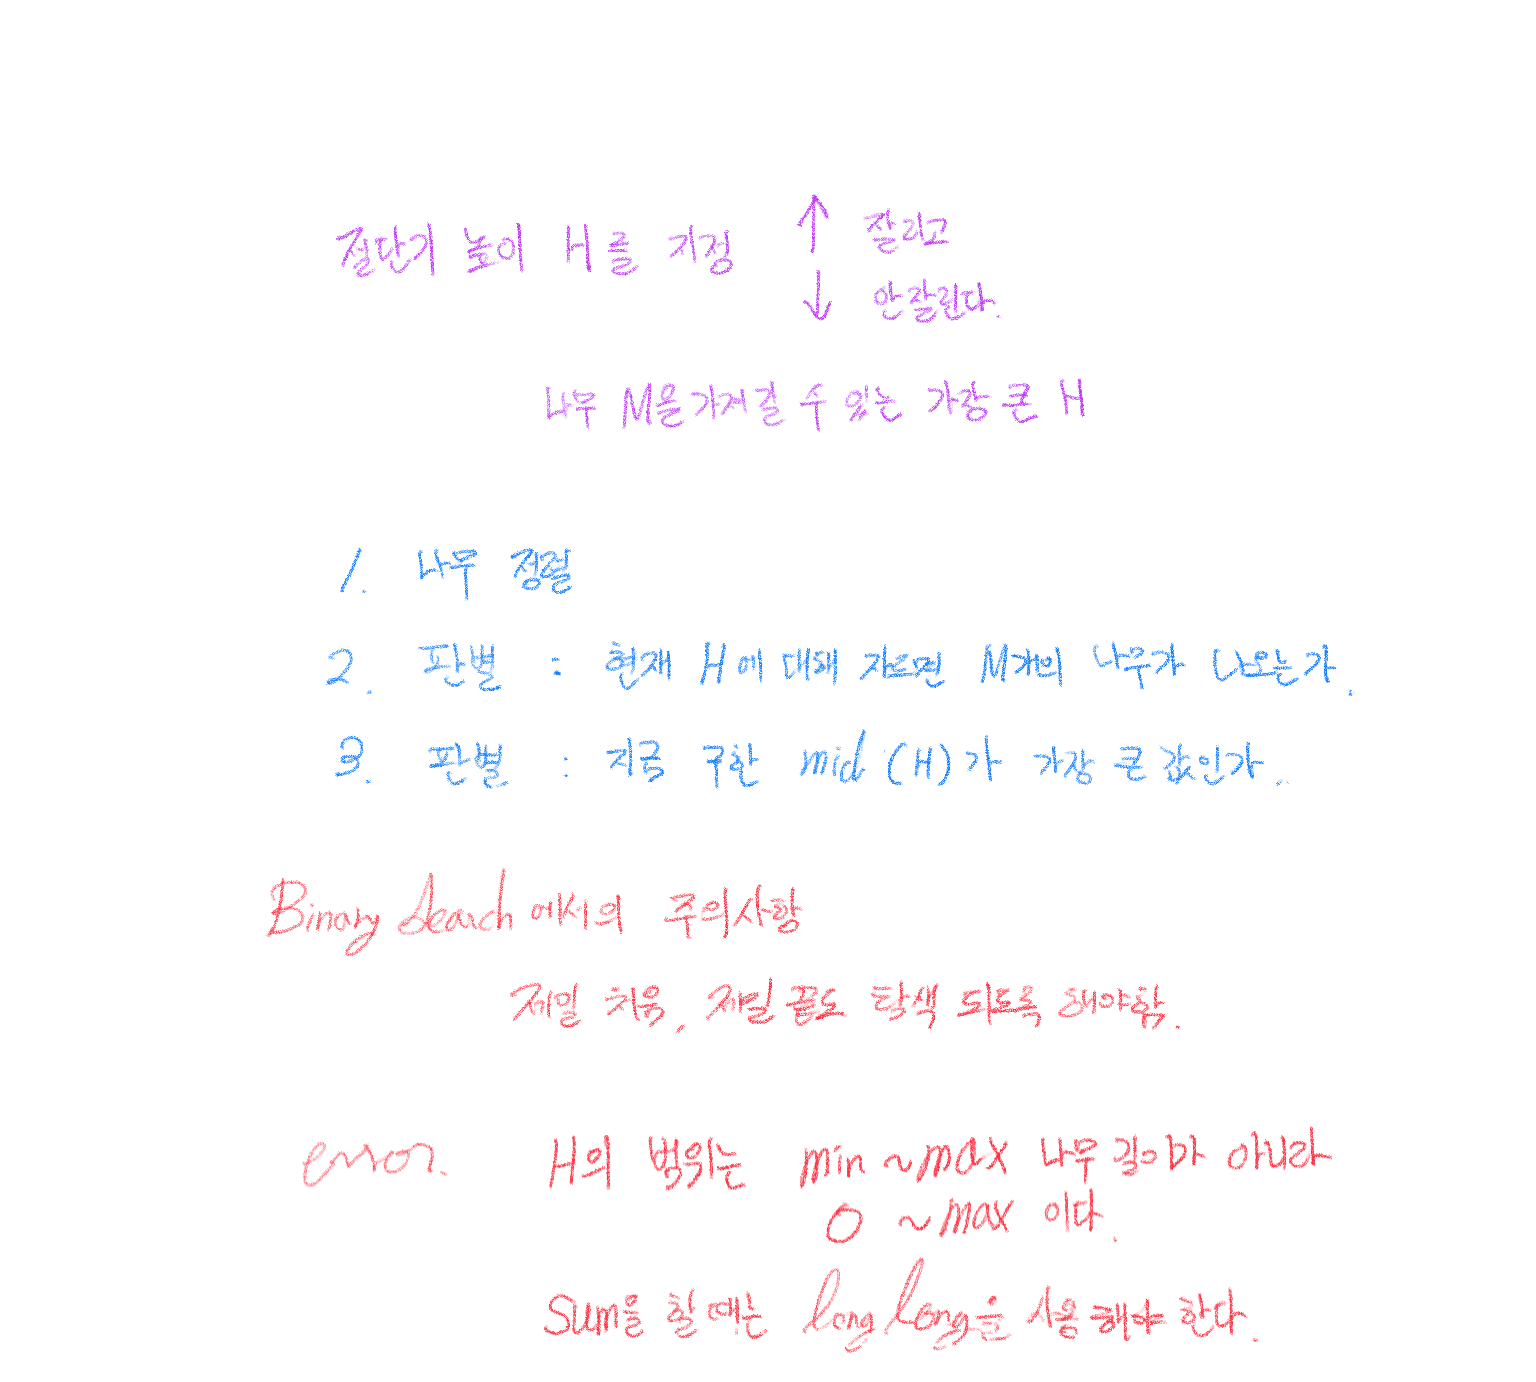 절단기 높이 H를 지정 ↑ 잘리고
↓ 안잘린다.
나무 M을 가져갈 수 있는 가장 큰 H
1. 나무 정렬
2. 판별 : 현재 H에 대해 자르면 M개의 나무가 나오는가.
3. 판별 : 지금 구한 mid (H)가 가장 큰 값인가.
Binary Search에서의 주의사항
제일 처음, 제일 끝도 탐색 되도록 해야함.
error. H의 범위는 min ~ max 나무 길이가 아니라
0 ~ max 이다.
Sum을 할 때는 long long을 사용해야 한다.